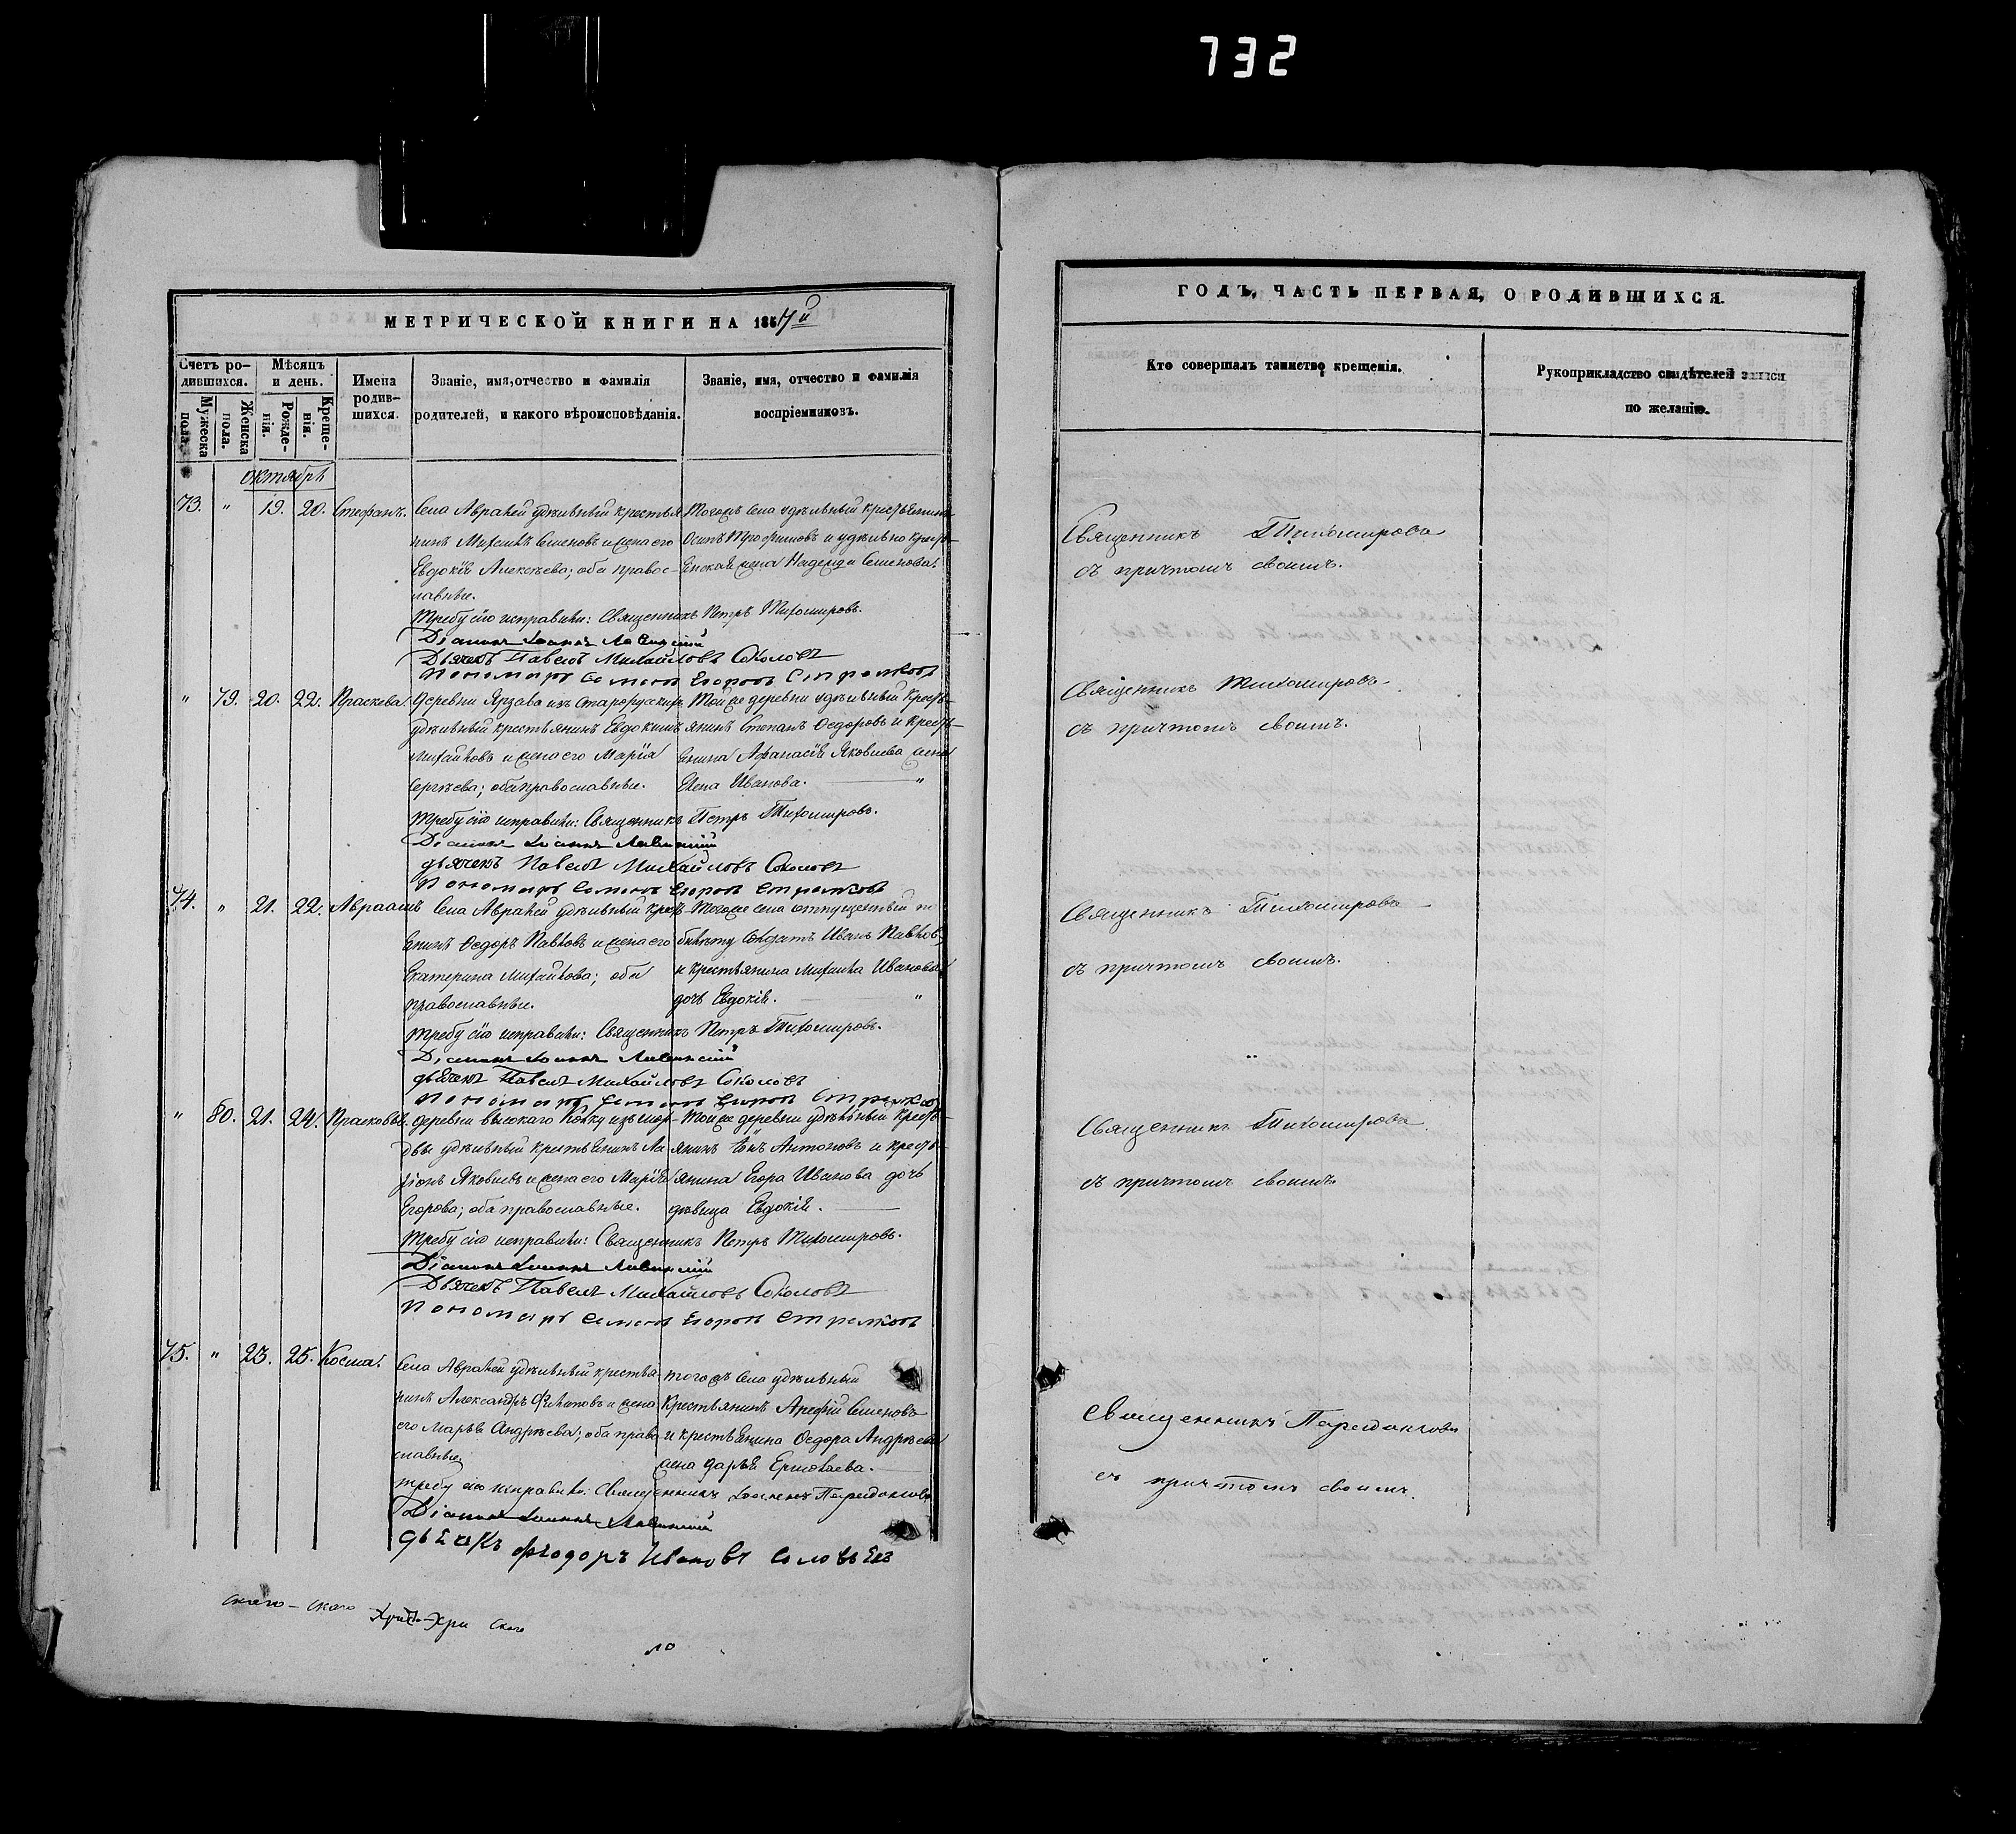 732
МЕТРИЧЕСКОЙ КНИГИ НА 1857й
Счетъ родившихся.
Мужеска пола.
Женска пола.
Мѣсяцъ и день.
Рожденія.
Крещенія.
Имена родившихся.
Званіе, имя, отчество и фамилія родителей, и какого вѣроисповѣданія.
Званіе, имя, отчество и фамилія воспріемниковъ.
октябрь
73. " 19. 20. Стефанъ. Села Аврачей удѣльный крестья- Тогожъ села удѣльный крестьянинъ
нинъ Михаилъ Семеновъ и жена его Осипъ Трофимовъ и удѣльно крестья-
Евдокія Алексѣева; оба право- женa Надежда Семенова.
славные.
Требу сію исправили: Священникъ Петръ Тихомировъ.
Діаконъ Іоаннъ
Дьячекъ Павелъ Михайловъ Соколовъ
Пономарь Семенъ Егоровъ Стрелковъ
" 79. 20. 22. Праскева. деревни Той же деревни удѣльный кресть-
удѣльный крестьянинъ Евдокимъ янинъ Степанъ Ѳедоровъ и кресть-
Михайловъ и жена его Марія янина Яковлева жена
Сергѣева; оба православные. Елена Иванова. "
Требу сію исправили: Священникъ Петръ Тихомировъ.
Діаконъ Іоаннъ
дьячекъ Павелъ Михайловъ Соколовъ
Пономарь Семенъ Егоровъ Стрелковъ
74. " 21. 22. Авраамъ Села Аврачей удѣльный кресть- Тогоже села отпущенный по
янинъ Ѳедоръ Павловъ и жена его билету солдатъ Иванъ Павловъ
Екатерина Михайлова; оба и крестьянина Михаила Иванова
православные. дочь Евдокія. "
Требу сію исправили: Священникъ Петръ Тихомировъ.
Діаконъ Іоаннъ
дьячекъ Павелъ Михайловъ Соколовъ
Пономарь Семенъ Егоровъ Стрелковъ
" 80. 21. 24. Прасковья. деревни Высокаго Той же деревни удѣльный кресть-
удѣльный крестьянинъ янинъ Антоновъ и кресть-
Яковлевъ и жена его Марія янина Егора Иванова дочь
Егорова; оба православные. дѣвица Евдокія.
Требу сію исправили: Священникъ Петръ Тихомировъ.
Діаконъ Іоаннъ
Дьячекъ Павелъ Михайловъ Соколовъ
Пономарь Семенъ Егоровъ Стрелковъ
75. " 23. 25. Косма. Села Аврачей удѣльный крестья- тогожъ села удѣльный
нинъ Александръ Филиповъ и жена крестьянинъ Арефій Семеновъ
его Марья Андрѣева; оба право- и крестьянина Ѳедора Андрѣева
славные. жена Дарья Ермолаева.
требу сію исправилъ: Священникъ Іоаннъ
Діаконъ Іоаннъ
дьячекъ Фѣодоръ Ивановъ Соловьевъ
скаго - скаго
Хри-Хри скаго
ло
ГОДЪ, ЧАСТЬ ПЕРВАЯ, О РОДИВШИХСЯ.
Кто совершалъ таинство крещенія.
Рукоприкладство свидѣтелей записи по желанію.
Священникъ Тихомировъ
съ причтомъ своимъ.
Священникъ Тихомировъ
съ причтомъ своимъ.
Священникъ Тихомировъ
съ причтомъ своимъ.
Священникъ Тихомировъ
съ причтомъ своимъ
Священникъ
съ причтомъ своимъ.